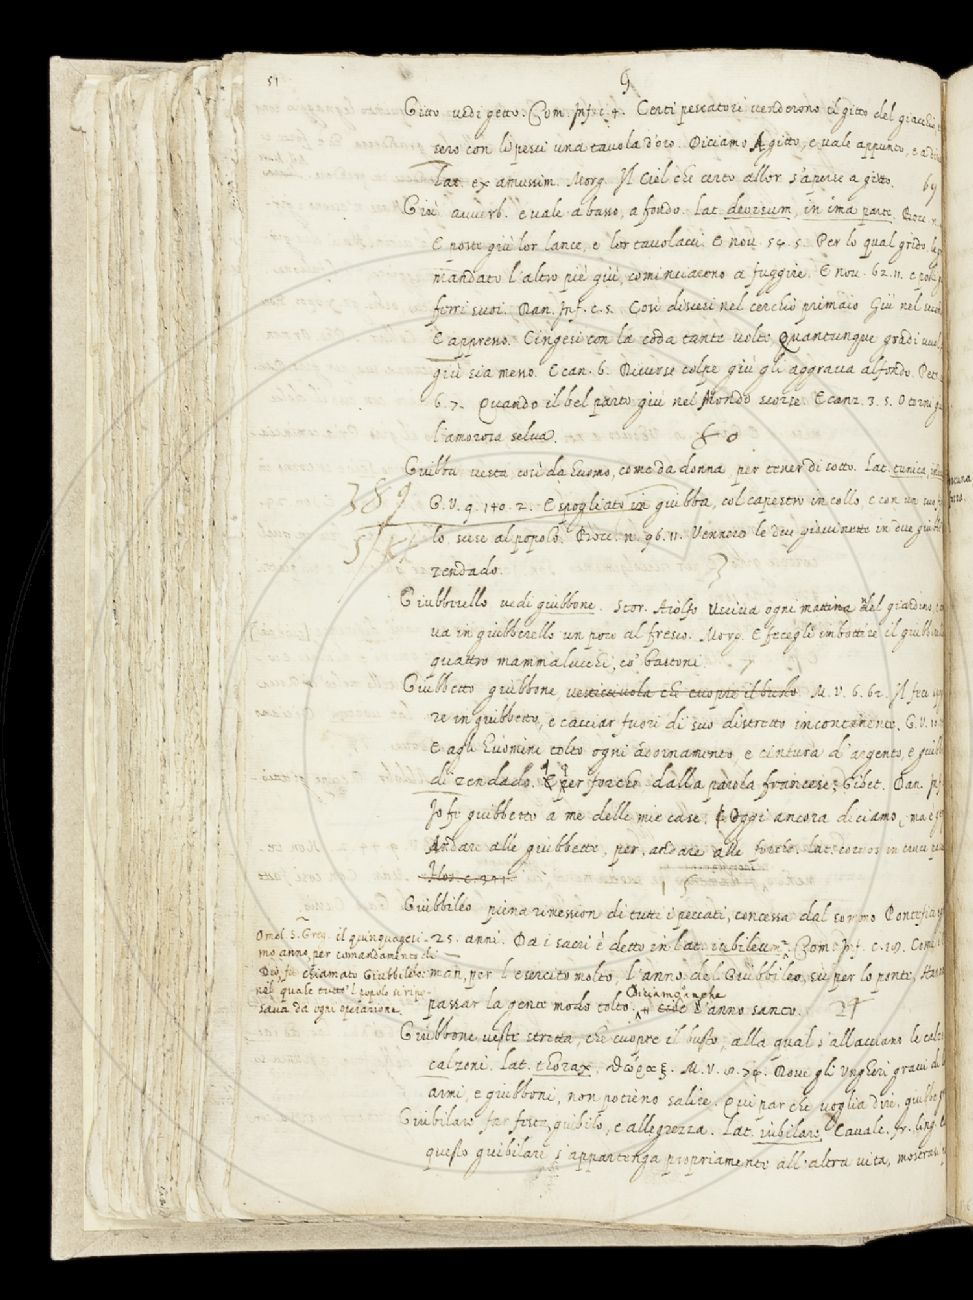 51
G
Gitto vedi getto. Com. Inf. c. 4. Certi pescatori venderono il gitto del giacchio
sero con li pesci una tavola d'oro. Diciamo A gitto, e vale appunto, e
Lat. ex amussim. Morg. Il Ciel che certo allor s'aperse a gitto. 69
Giù avverb. e vale a basso, a fondo. Lat. deorsum, in ima parte. Bocc. n.
E poste giù lor lance, e lor tavolacci. E nov. 54. 5. Per lo qual grido le
mandato l'altro piè giù, cominciarono a fuggire. E nov. 62. 11. e
ferri suoi. Dan. Inf. c. 5. Così discesi nel cerchio primaio Giù nel
E appresso. Cingesi con la coda tante volte Quantunque gradi vuol
giù sia messo. E can. 6. Diverse colpe giù gli aggrava al fondo. Petr.
6. 7. Quando il bel parto giù nel Mondo scorse. E canz. 3. 5. O torni giù
l'amorosa selva.
Giubba vesta così da huomo, come da donna per tener di sotto. Lat. tunica,
389
G. V. 9. 140. 2. E spogliato in giubba, col capestro in collo, e con un suo
lo, scese al popolo. Bocc. n. 96. 11. Vennero le due giovinette in due giubbe
zendado.
Giubberello vedi giubbone. Stor. Aiolfo Usciva ogni mattina nel giardino,
va in giubberello un poco al fresco. Morg. E fecegli imbottire il giubberello
quattro mammalucchi, co' bastoni.
Giubbetto giubbone, vesticciuola che cuopre il busto. M. V. 6. 62. Il fece
re in giubbetto, e cacciar fuori di suo distretto incontanente. G. V. 10
E agli huomini tolto ogni adornamento, e cintura d'argento, e giubb
di zendado. E per forche dalla parola francese: Gibet. Dan. Inf
Io fe giubbetto a me delle mie case. Oggi ancora diciamo,
Andare alle giubbette, per, andare alle forche. Lat.
Giubbileo piena remession di tutti i peccati, concessa dal sommo Pontefice
25. anni. Da i sacri è detto in lat. iubileum. Com. Inf. c. 18. Come i
Roman, per l'esercito molto, l'anno del Giubbileo, su per lo ponte, Hanno
passar la gente modo tolto. Diciamo anche l'anno santo.
Omel. S. Greg. il quinquagesi-
mo anno, per comandamento di
Dio, fu chiamato Giubbileo:
nel quale tutto 'l popolo si ripo-
sava da ogni operazione.
Giubbone veste stretta, che cuopre il busto, alla qual s'allacciano le calze
calzoni. Lat. thorax, θώραξ. M. V. 8. 74. Dove gli Ungheri gravi di
armi, e giubboni, non potieno salire. Qui par che voglia dire, giubbe
Giubilare far festa, giubilo, e allegrezza. Lat. iubilare. Cavalc. fr. ling.
questo giubilare s'appartenga propriamente all'altra vita,